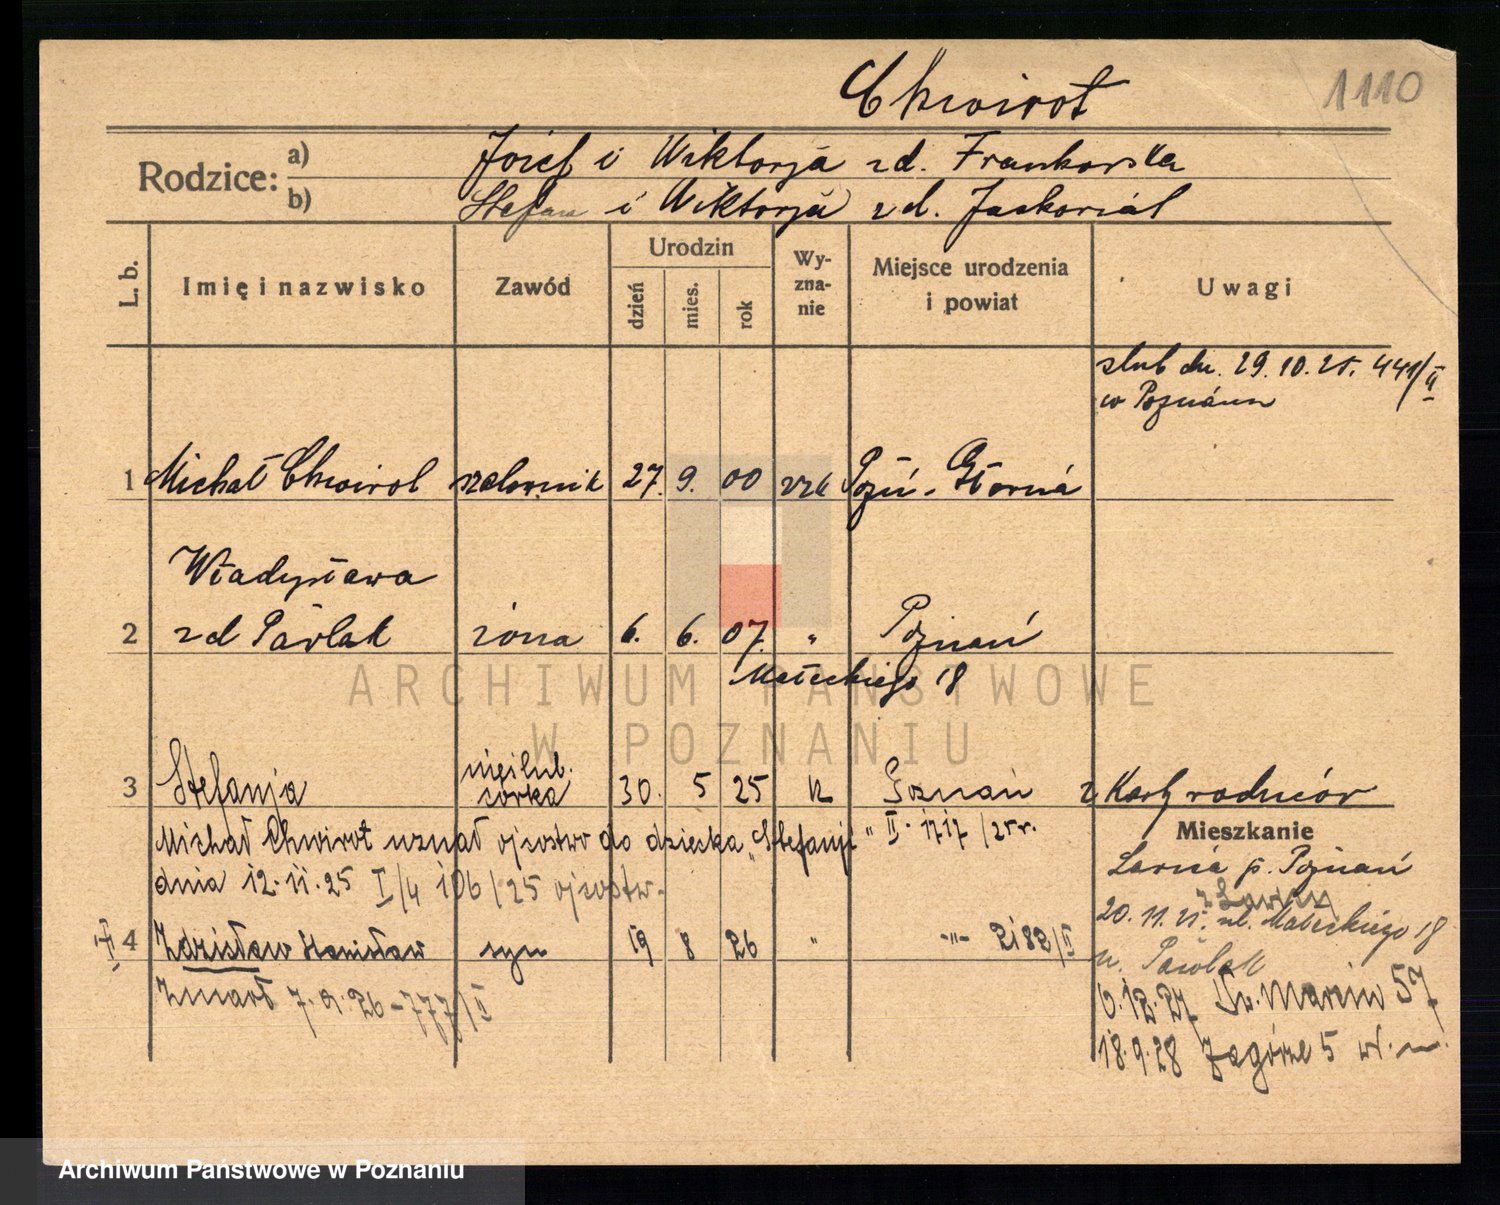 Chwirot
1110
Rodzice:
a) Józef i Wiktorja zd. Frankowska
b) Stefan i Wiktorja zd. Jaskoviat
L. b.
Imię i nazwisko
Zawód
Urodzin
dzień
mies.
rok
Wy-
zna-
nie
Miejsce urodzenia
i powiat
Uwagi
ślub dn. 29.10.25. 441/II
w Poznaniu
1 Michał Chwirot 27. 9. 00 rzk Pozń.
Władysława
2 zd Pawlak żona 6. 6. 07. " Poznań
Małeckiego 18
ARCHIWUM PAŃSTWOWE
W POZNANIU
nieślub.
3 Stefanja córka 30. 5 25 k Poznań z Karty rodziców
Michał Chwirot uznał ojcostwo do dziecka „Stefanji" II. 1717/25 r.
dnia 12.11.25 I/4 106/25 ojcostw.
4 Zdzisław Stanisław syn 19 8 26 " -"- 2182/II
Zmarł 7.9.26 - 777/II
Mieszkanie
p. Poznań
20.11.25. ul. Małeckiego 18
u. Pawlak
6.12.27 Św. Marcin 57
18.9.28 Zagórze 5
Archiwum Państwowe w Poznaniu